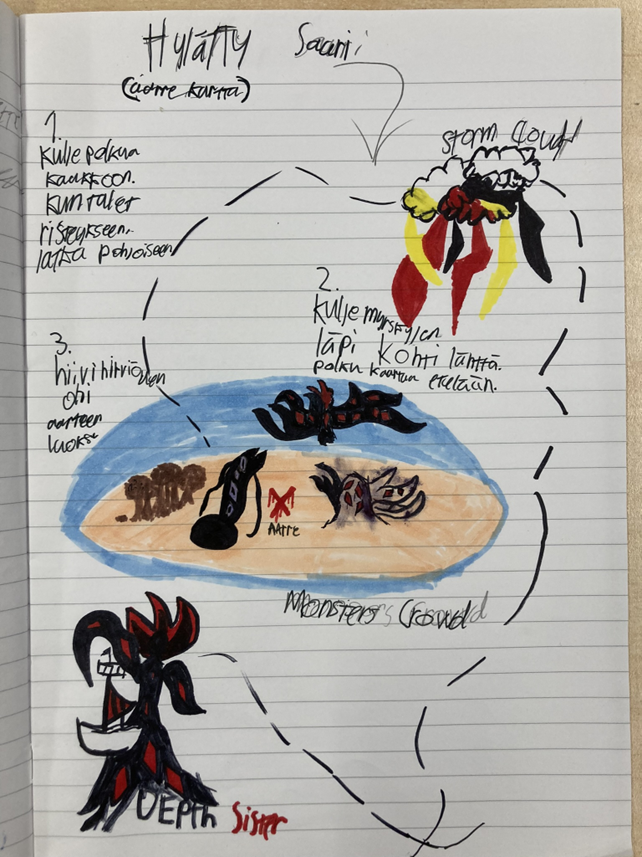 Hylätty Saari
(aarre kartta)
storm Cloud
1.
kulje polkua
kaakkoon.
kun tulet
risteykseen,
jatka pohjoiseen
2.
kulje myrskyjen
läpi kohti länttä.
polku kaartuu etelään.
3.
hiivi hirviöiden
ohi
aarteen
luokse
AARRE
Monsters Crowd
DEPth Sister